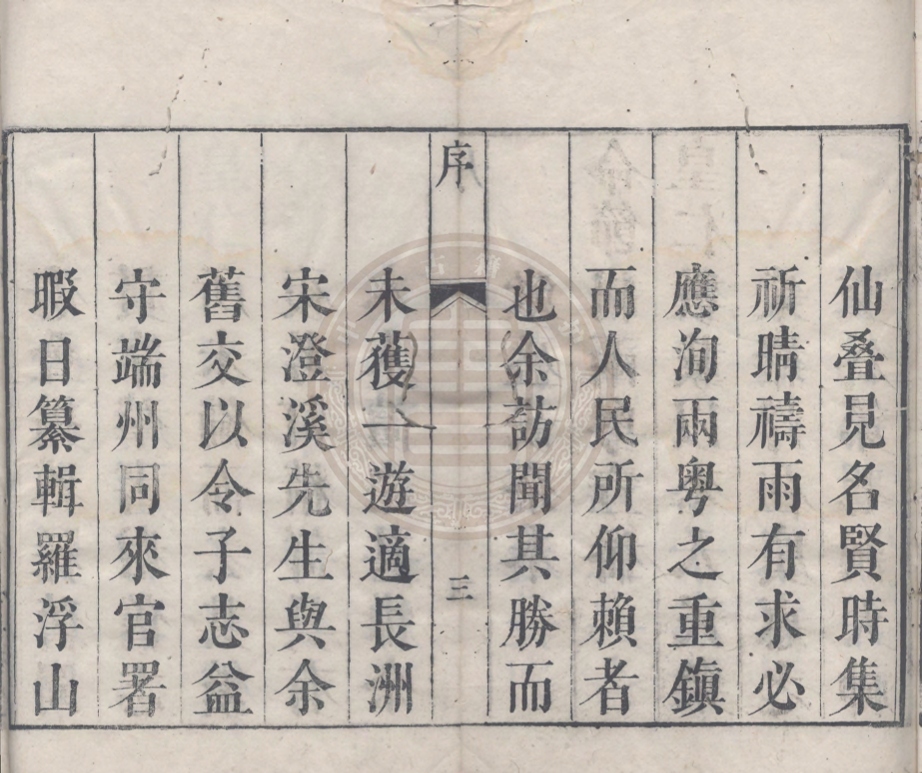 仙叠見名賢時集
祈晴禱雨有求必
應洵兩粤之重鎮
而人民所仰賴者
也余訪聞其勝而
序
三
未獲一遊適長洲
宋澄溪先生與余
舊交以令子志益
守端州同來官署
暇日纂輯羅浮山